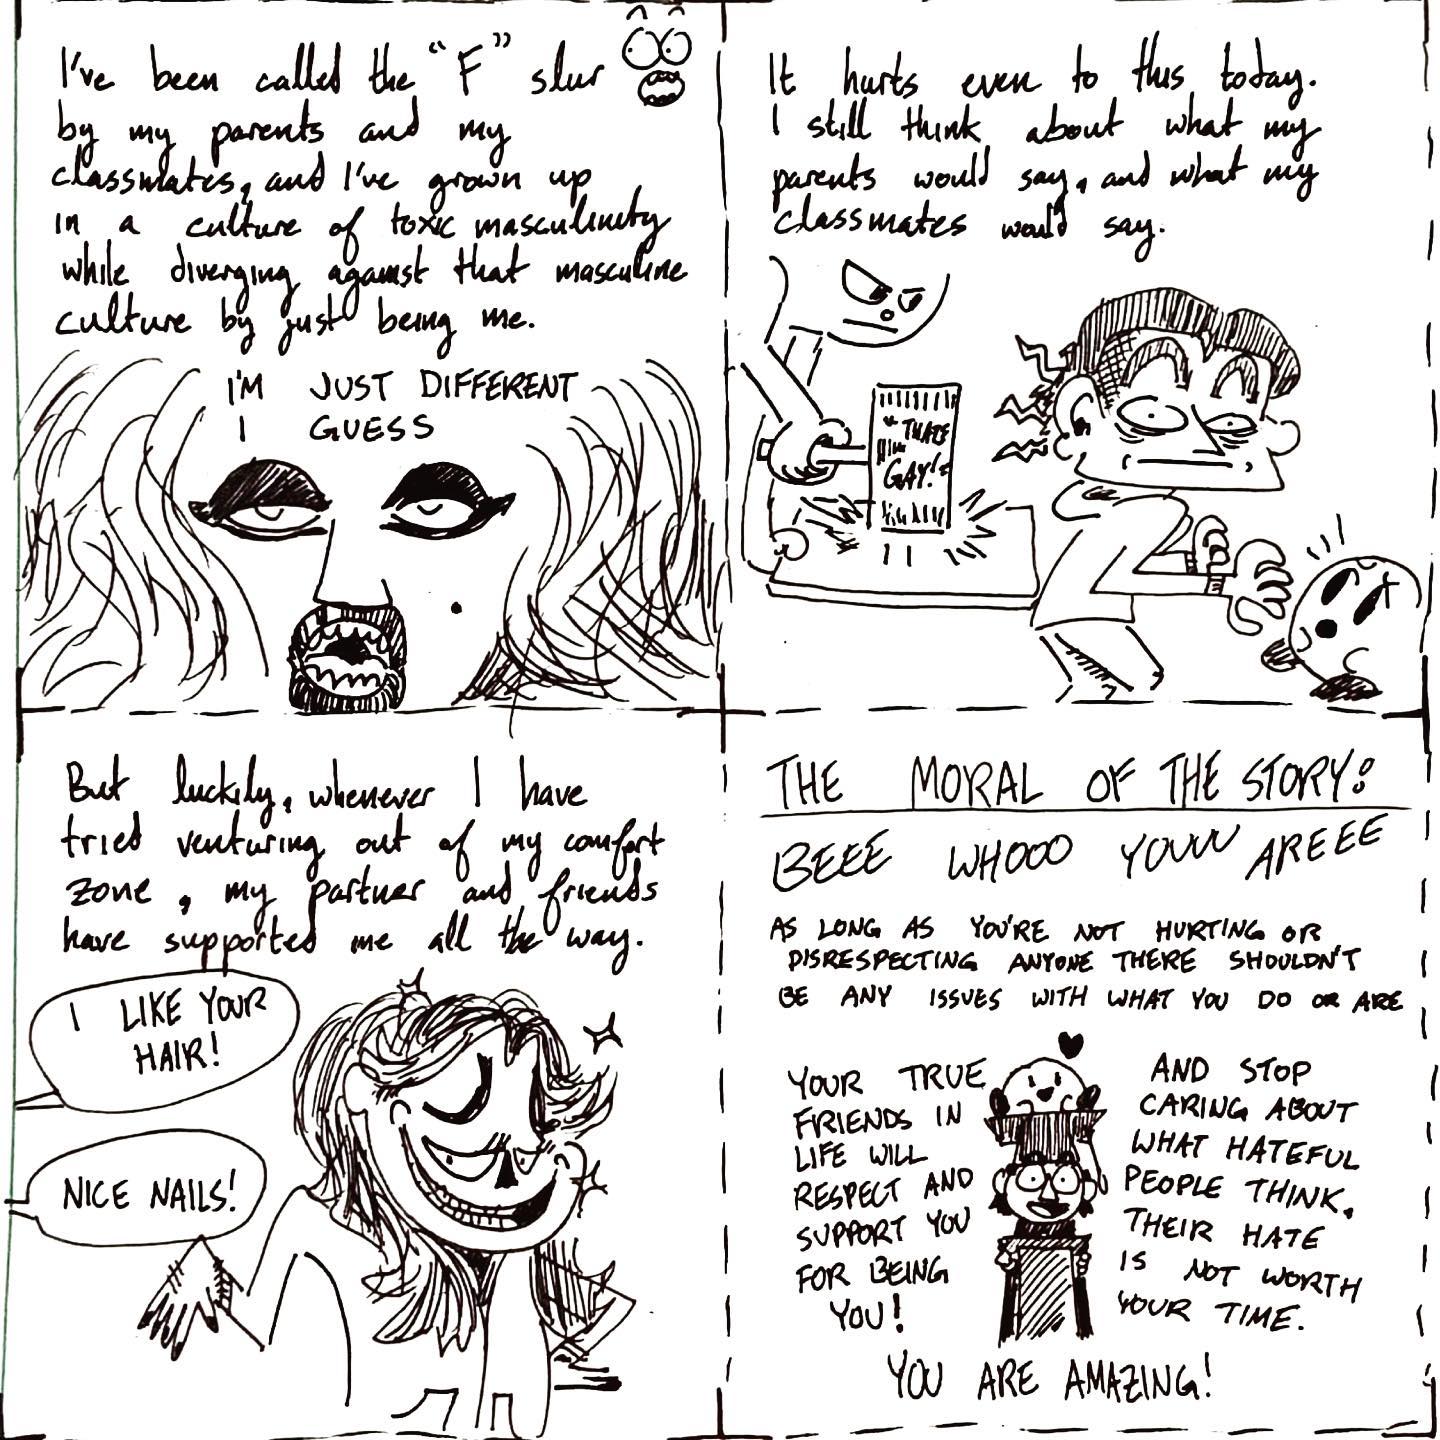 I've been called the "F" slur
by my parents and my
classmates, and I've grown up
in a culture of toxic masculinity
while diverging against that masculine
culture by just being me.
I'M JUST DIFFERENT
I GUESS
It hurts even to this today.
I still think about what my
parents would say, and what my
classmates would say.
GAY!"
But luckily, whenever I have
tried venturing out of my comfort
zone, my partner and friends
have supported me all the way.
I LIKE YOUR
HAIR!
NICE NAILS!
THE MORAL OF THE STORY:
BEEE WHOOO YOUUU AREEE
AS LONG AS YOU'RE NOT HURTING OR
DISRESPECTING ANYONE THERE SHOULDN'T
BE ANY ISSUES WITH WHAT YOU DO OR ARE
YOUR TRUE
FRIENDS IN
LIFE WILL
RESPECT AND
SUPPORT YOU
FOR BEING
YOU!
AND STOP
CARING ABOUT
WHAT HATEFUL
PEOPLE THINK,
THEIR HATE
IS NOT WORTH
YOUR TIME.
YOU ARE AMAZING!